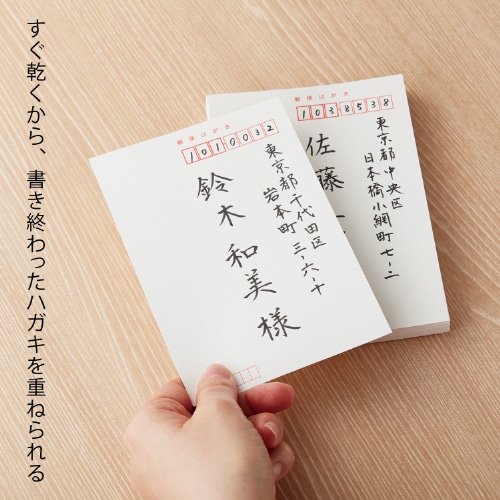 すぐ乾くから、書き終わったハガキを重ねられる
郵便はがき
1010032
東京都千代田区
岩本町三-六-十
鈴木和美様
郵便はがき
1038538
東京都中央区
日本橋小網町七-二
佐藤